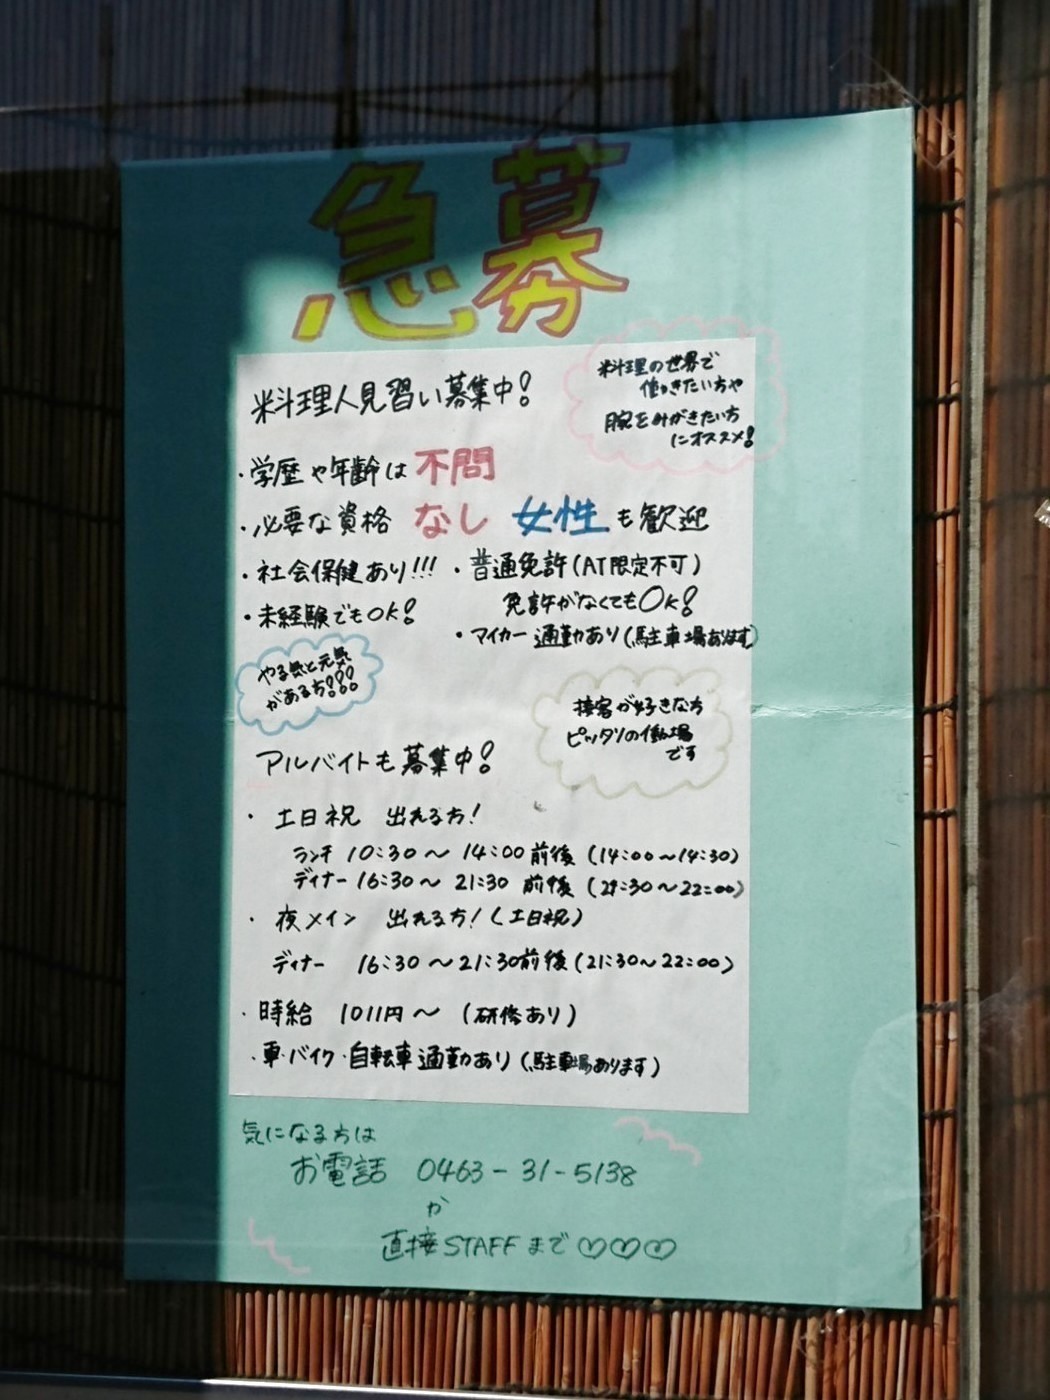 急募
料理人見習い募集中!
料理の世界で
働きたい方や
腕をみがきたい方
にオススメ!
・学歴や年齢は不問
・必要な資格 なし 女性も歓迎
・社会保健あり!!!
・普通免許(AT限定不可)
免許がなくてもOK!
・未経験でもOK!
・マイカー通勤あり(駐車場あります)
やる気と元気
がある方!!!!
接客が好きな方
ピッタリの働場
です
アルバイトも募集中!
・土日祝 出れる方!
ランチ 10:30～14:00前後(14:00～14:30)
ディナー 16:30～21:30 前後(21:30～22:00)
・夜メイン 出れる方!(土日祝)
ディナー 16:30～21:30前後(21:30～22:00)
・時給 1011円～(研修あり)
・車・バイク・自転車通勤あり(駐車場あります)
気になる方は
お電話 0463-31-5138
か
直接STAFFまで♡♡♡